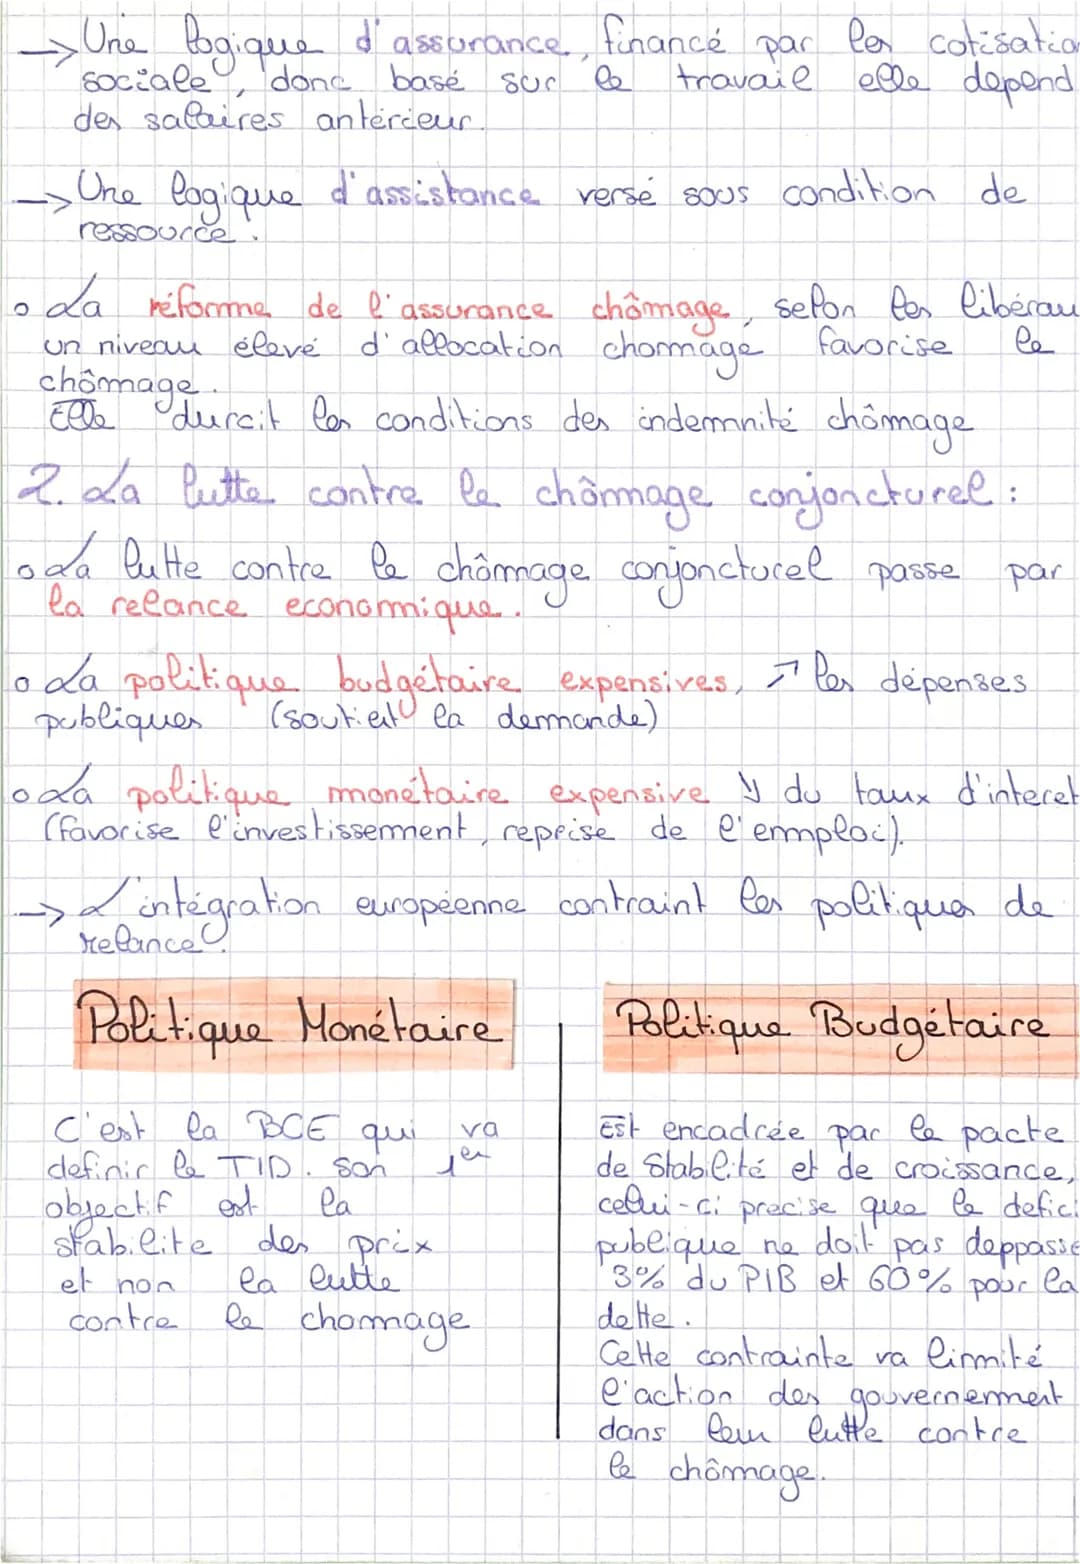 → Une logique d'assurance, financé par les cotisatio
sociale, donc basé sur le travaile elle depend
des salaires antérieur.
→ Une logique d'assistance versé sous condition de
ressource.
o La réforme de l'assurance chômage, selon les libérau
un niveau élevé d'allocation chommage favorise le
chômage.
Elle durcit les conditions des indemnité chômage
2. La lutte contre le chômage conjoncturel :
o La lutte contre le chômage conjoncturel passe par
la relance economique.
o La politique budgétaire expensives, ↗ les dépenses
publiques (soutient la demande)
o La politique monétaire expensive ↘ du taux d'interet
(favorise l'investissement, reprise de l'emploi).
→ L'intégration européenne contraint les politiques de
relance.
Politique Monétaire
C'est la BCE qui va
definir le TID. Son 1er
objectif est la
stabilite des prix
et non la lutte
contre le chomage
Politique Budgétaire
Est encadrée par le pacte
de Stabilité et de croissance,
celui-ci precise que le defici
publique ne doit pas deppasse
3% du PIB et 60% pour la
dette.
Cette contrainte va limité
l'action des gouvernement
dans leur lutte contre
le chômage.